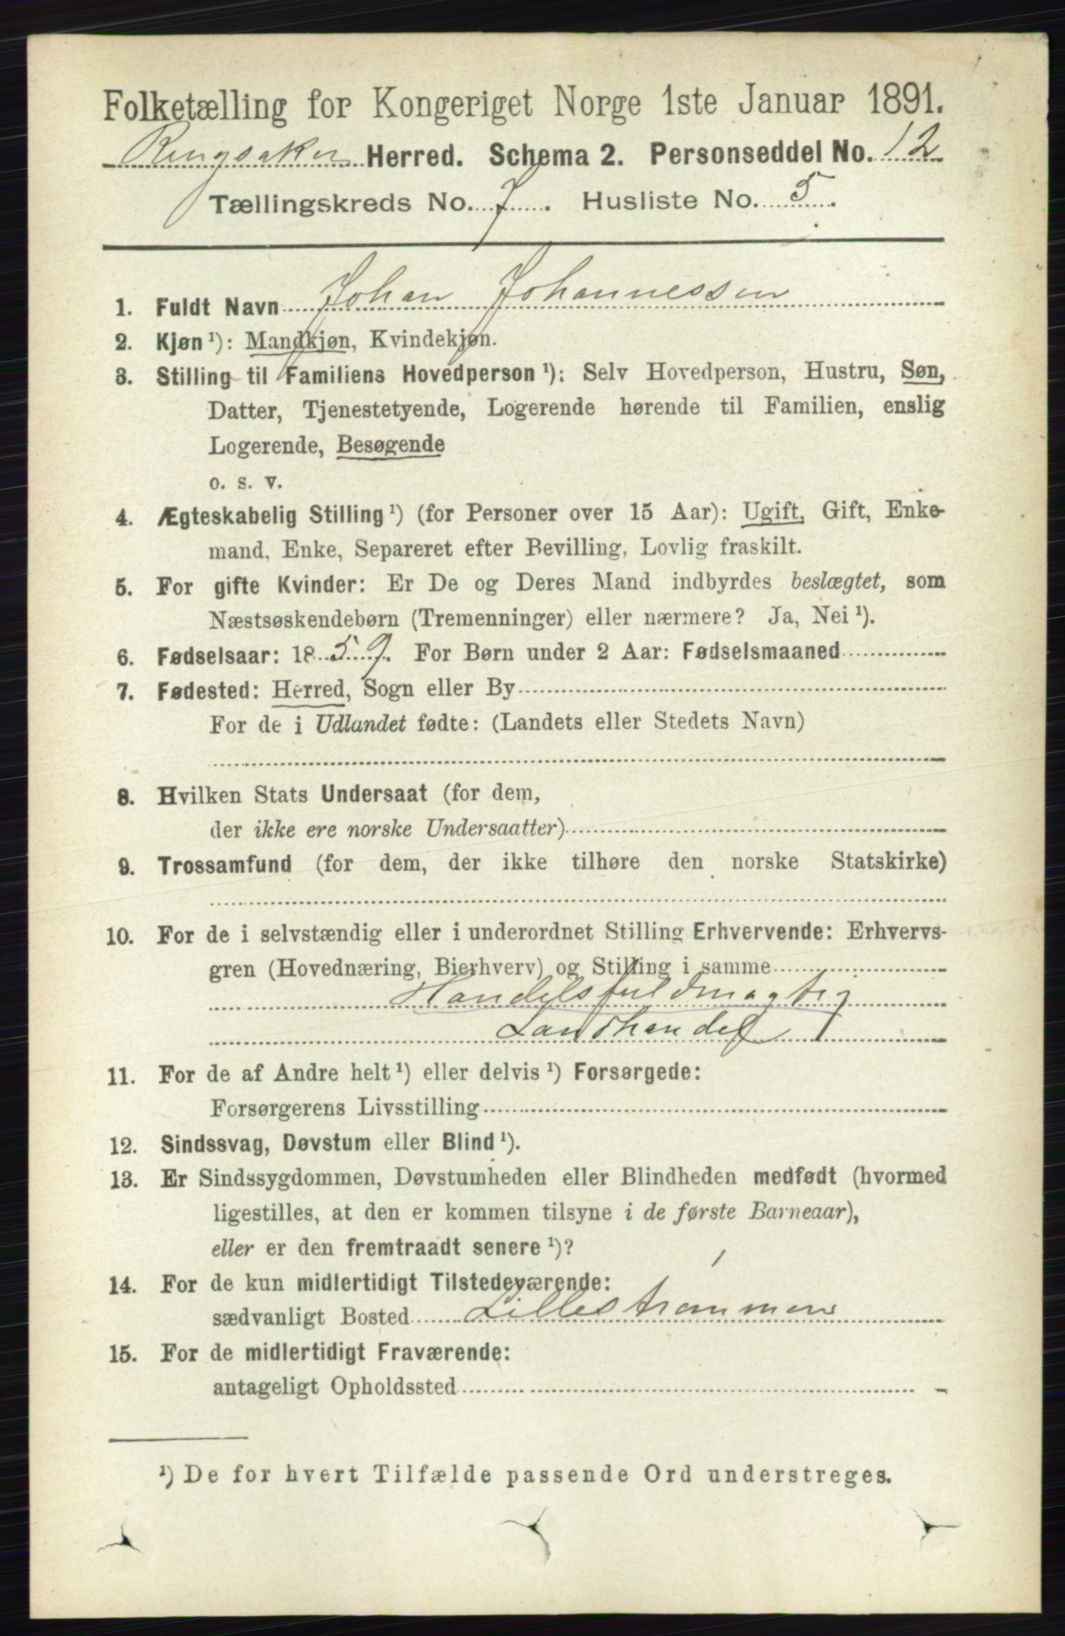 Folketælling for Kongeriget Norge 1ste Januar 1891.
Ringsaker Herred. Schema 2. Personseddel No. 12
Tællingskreds No. 7. Husliste No. 5.
1. Fuldt Navn Johan Johannessen
2. Kjøn ¹): Mandkjøn, Kvindekjøn.
3. Stilling til Familiens Hovedperson ¹): Selv Hovedperson, Hustru, Søn,
Datter, Tjenestetyende, Logerende hørende til Familien, enslig
Logerende, Besøgende
o. s. v.
4. Ægteskabelig Stilling ¹) (for Personer over 15 Aar): Ugift, Gift, Enke-
mand, Enke, Separeret efter Bevilling, Lovlig fraskilt.
5. For gifte Kvinder: Er De og Deres Mand indbyrdes beslægtet, som
Næstsøskendebørn (Tremenninger) eller nærmere? Ja, Nei ¹).
6. Fødselsaar: 1859. For Børn under 2 Aar: Fødselsmaaned
7. Fødested: Herred, Sogn eller By
For de i Udlandet fødte: (Landets eller Stedets Navn)
8. Hvilken Stats Undersaat (for dem,
der ikke ere norske Undersaatter)
9. Trossamfund (for dem, der ikke tilhøre den norske Statskirke)
10. For de i selvstændig eller i underordnet Stilling Erhvervende: Erhvervs-
gren (Hovednæring, Bierhverv) og Stilling i samme
Handelsfuldmægtig
Landhandel
11. For de af Andre helt ¹) eller delvis ¹) Forsørgede:
Forsørgerens Livsstilling
12. Sindssvag, Døvstum eller Blind ¹).
13. Er Sindssygdommen, Døvstumheden eller Blindheden medfødt (hvormed
ligestilles, at den er kommen tilsyne i de første Barneaar),
eller er den fremtraadt senere ¹)?
14. For de kun midlertidigt Tilstedeværende:
sædvanligt Bosted Lillestrømmen
15. For de midlertidigt Fraværende:
antageligt Opholdssted
¹) De for hvert Tilfælde passende Ord understreges.